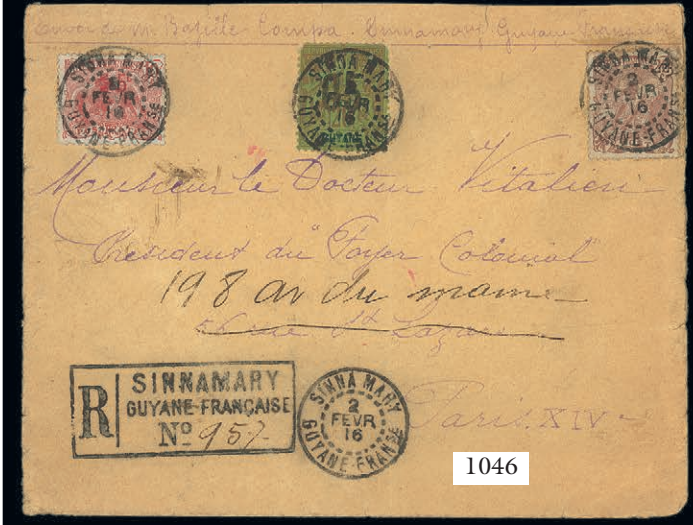 Envoi de M. Bazile Compa. Sinnamary Guyane Française
SINNAMARY
FEVR
16
GUYANE-FRANSE
SINNAMARY
FEVR
16
GUYANE-FRANSE
GUYANE
SINNAMARY
2
FEVR
16
GUYANE-FRANSE
Monsieur le Docteur Vitalien
President du "Foyer Colonial"
198 av du maine
56 rue St Lazare
R
SINNAMARY
GUYANE-FRANÇAISE
No 957
SINNAMARY
2
FEVR
16
GUYANE-FRANSE
Paris XIVe
1046